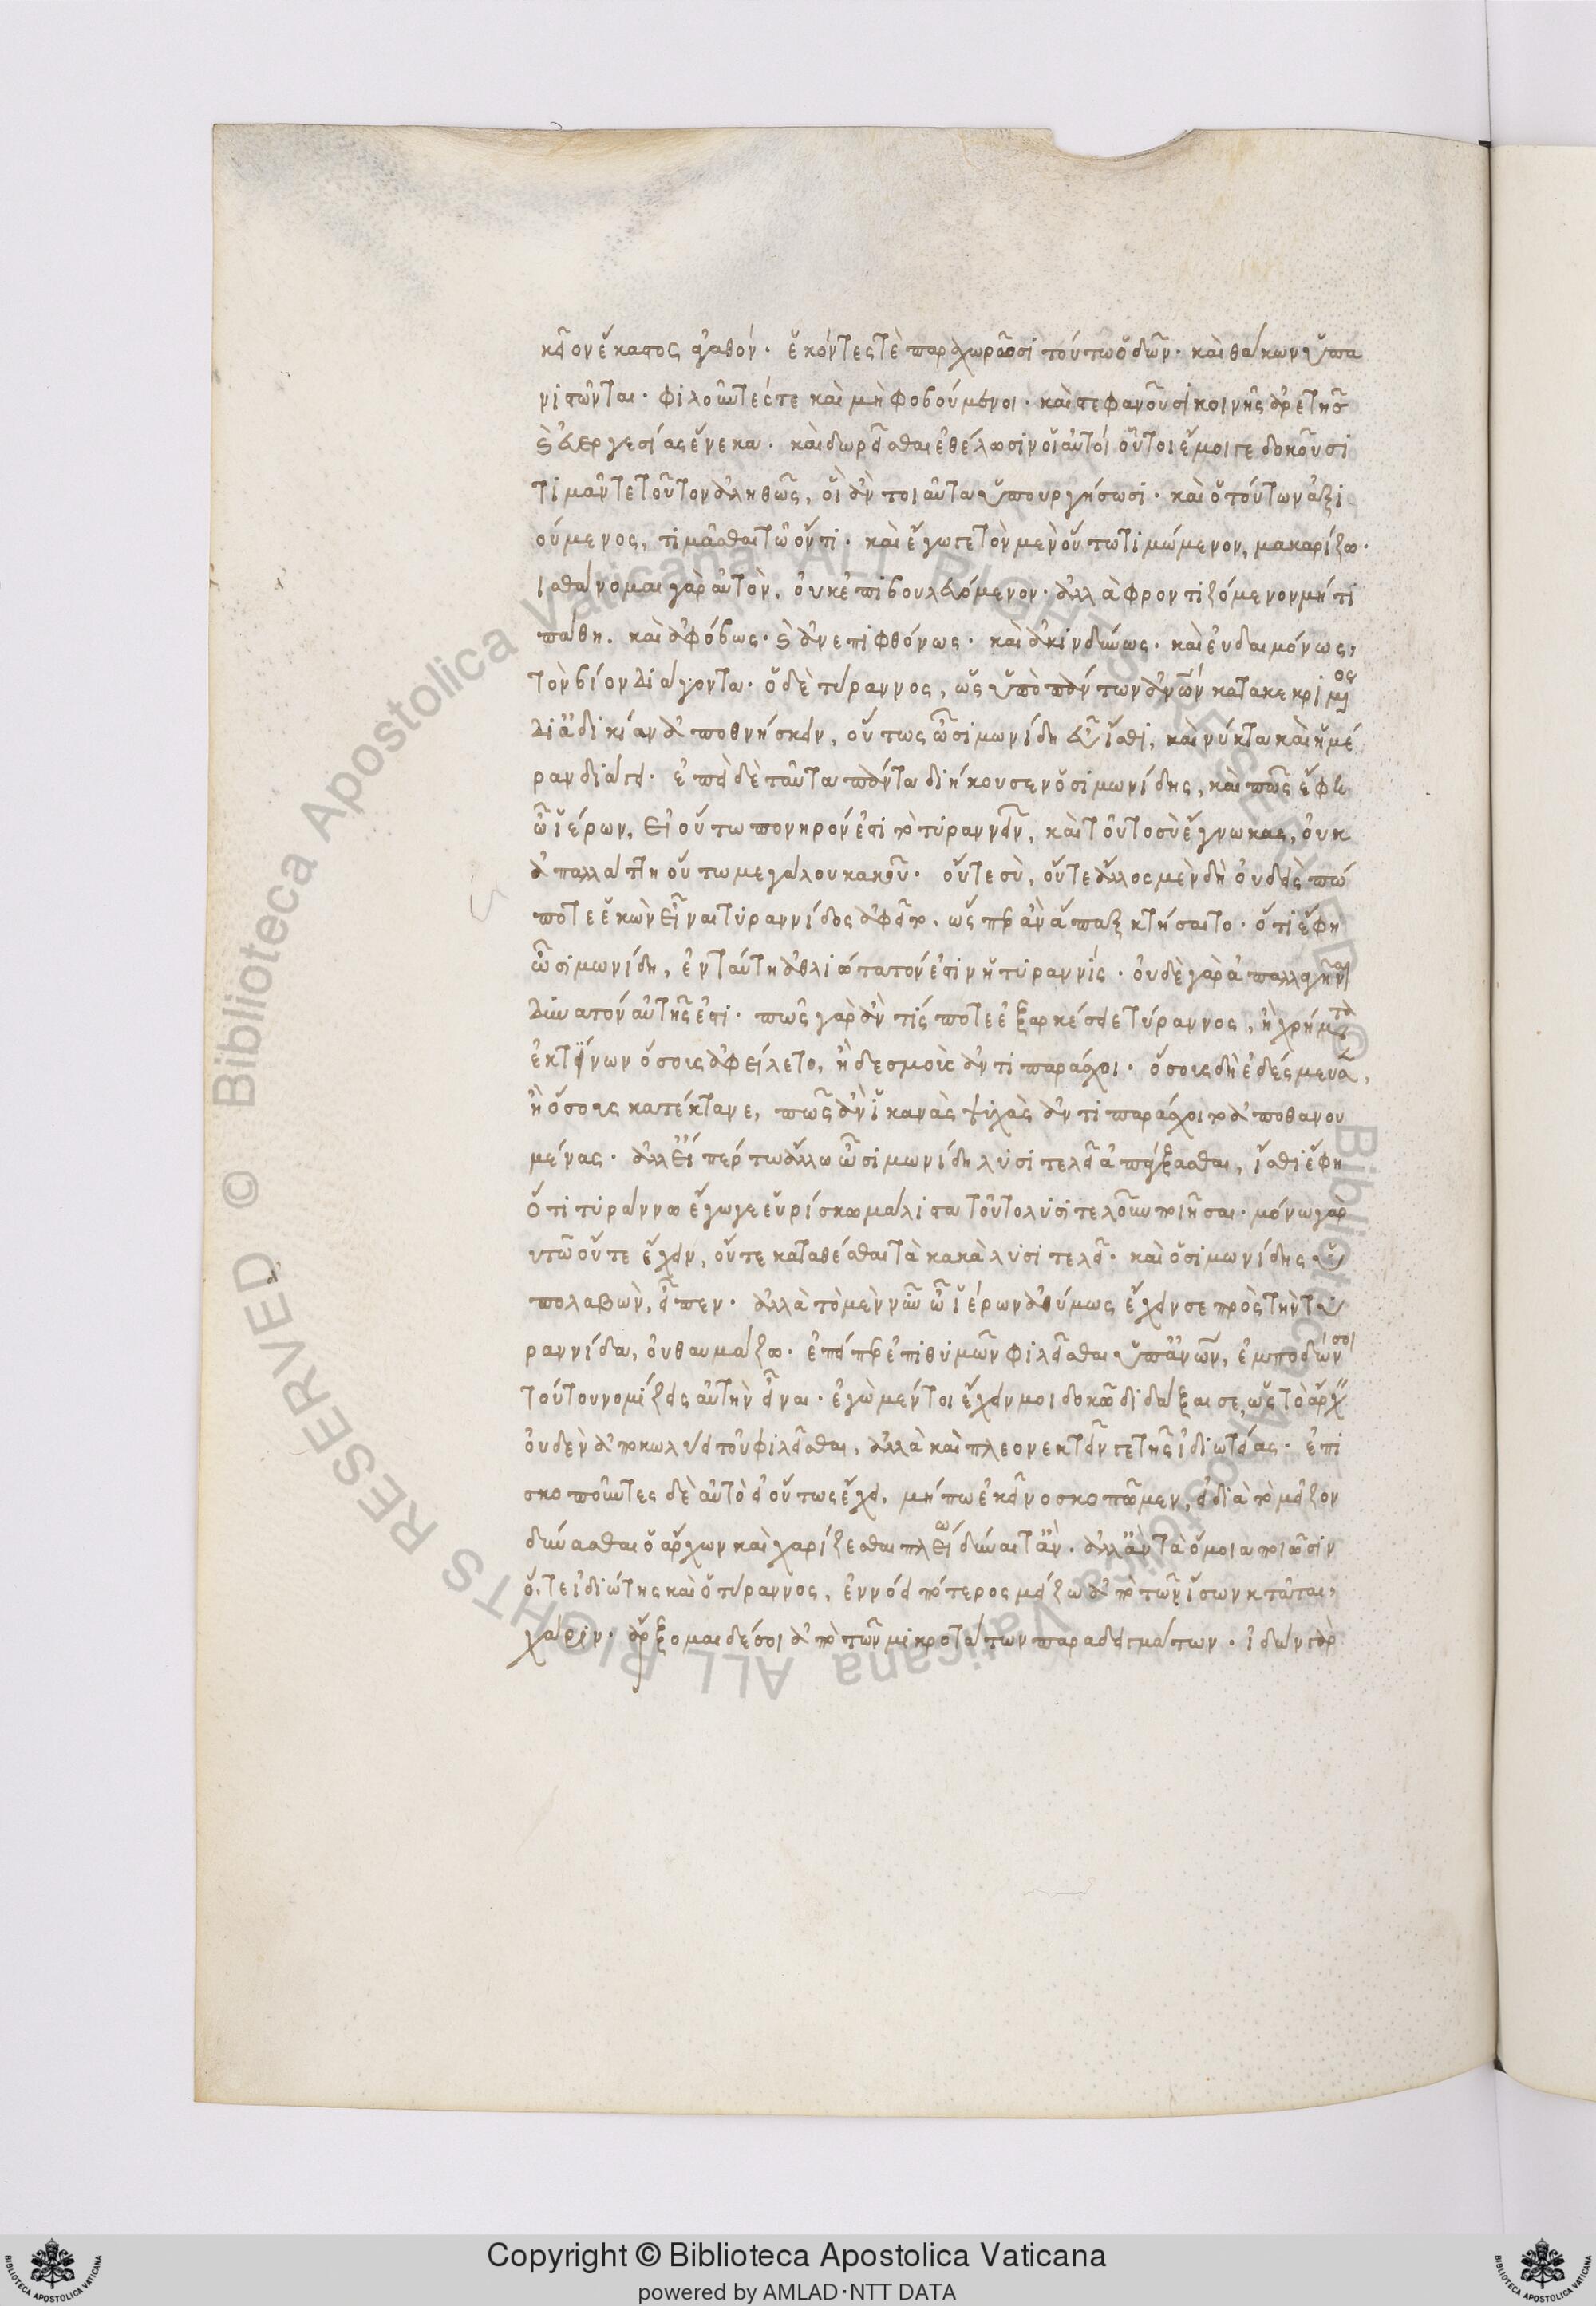 κεῖον ἕκαστος ἀγαθόν· ἑκόντες τὲ παραχωρῶσι τούτω ὁδῶν· καὶ θάκων ὑπα
νιστῶνται· φιλοῦντές τε καὶ μὴ φοβούμενοι· καὶ στεφανοῦσι κοινῆς ἀρετῆς
καὶ εὐεργεσίας ἕνεκα· καὶ δωρεῖσθαι ἐθέλωσιν οἱ αὐτοί οὗτοι ἔμοιγε δοκοῦσι
τιμᾶν τε τοῦτον ἀληθῶς, οἳ ἂν τοιαῦτα ὑπουργήσωσι· καὶ ὁ τούτων ἀξι
ούμενος, τιμᾶσθαι τῶ ὄντι· καὶ ἔγωγε τὸν μὲν οὕτω τιμώμενον, μακαρίζω·
αἰσθάνομαι γὰρ αὐτὸν, οὐκ ἐπιβουλευόμενον· ἀλλὰ φροντιζόμενον μή τι
πάθη· καὶ ἀφόβως· καὶ ἀνεπιφθόνως· καὶ ἀκινδύνως· καὶ εὐδαιμόνως,
τὸν βίον διάγοντα· ὁ δὲ τύραννος, ὡς ὑπὸ πάντων ἀνων κατακεκριμένος
δι ἀδικίαν ἀποθνήσκειν, οὕτως ὦ σιμωνίδη εὖ ἴσθι, καὶ νύκτα καὶ ἡμέ
ραν διάγει· ἐπεὶ δὲ ταῦτα πάντα διήκουσεν ὁ σιμωνίδης, καὶ πῶς ἔφη
ὦ ἱέρων, εἰ οὕτω πονηρόν ἐστι τὸ τυραννεῖν, καὶ τοῦτο σὺ ἔγνωκας, οὐκ
ἀπαλλάττη οὕτω μεγάλου κακοῦ· οὔτε σὺ, οὔτε ἄλλος μὲν δὴ οὐδεὶς πώ
ποτε ἑκὼν εἶναι τυραννίδος ἀφεῖτο, ὥσπερ ἂν ἅπαξ κτήσαιτο· ὅτι ἔφη
ὦ σιμωνίδη, ἐν ταύτη ἀθλιώτατόν ἐστιν ἡ τυραννίς· οὐδὲ γὰρ ἀπαλλαγῆναι
δυνατὸν αὐτῆς ἐστι· πῶς γὰρ ἂν τίς ποτε ἐξαρκέσειε τύραννος, ἢ χρήματα
ἐκτίνων ὅσοις ἀφείλετο, ἢ δεσμοὺς ἀντιπαράσχοι· ὅσοις δὴ ἐδέσμευσεν,
ἢ ὅσους κατέκτανε, πῶς ἂν ἱκανὰς ψυχὰς ἀντιπαράσχοιτο ἀποθανου
μένας· ἀλλ εἴπερ τω ἄλλω ὦ σιμωνίδη λυσιτελεῖ ἀπάγξασθαι, ἴσθι ἔφη
ὅτι τυράννω ἔγωγε εὑρίσκω μάλιστα τοῦτο λυσιτελοῦν ποιῆσαι· μόνω γὰρ
αὐτῶ οὔτε ἔχειν, οὔτε καταθέσθαι τὰ κακὰ λυσιτελεῖ· καὶ ὁ σιμωνίδης ὑ
πολαβὼν, εἶπεν· ἀλλὰ τὸ μὲν νῦν ὦ ἱέρων ἀθύμως ἔχειν σε πρὸς τὴν τυ
ραννίδα, οὐ θαυμάζω· ἐπείπερ ἐπιθυμῶν φιλεῖσθαι ὑπ ἀνων, ἐμποδών σοι
τούτου νομίζεις αὐτὴν εἶναι· ἐγὼ μέντοι ἔχειν μοι δοκῶ διδάξαι σε, ὡς τὸ ἄρχειν
οὐδὲν ἀποκωλύει τοῦ φιλεῖσθαι, ἀλλὰ καὶ πλεονεκτεῖν γε τῆς ἰδιωτείας· ἐπι
σκοποῦντες δὲ αὐτὸ εἰ οὕτως ἔχει, μήπω ἐκεῖνο σκοπῶμεν, εἰ διὰ τὸ μεῖζον
δύνασθαι ὁ ἄρχων καὶ χαρίζεσθαι πλείω δύναιτ ἄν· ἀλλ ἂν τὰ ὅμοια ποιῶσιν
ὅ, τε ἰδιώτης καὶ ὁ τύραννος, ἐννόει πότερος μείζω ἀπὸ τῶν ἴσων κτᾶται,
χάριν· ἄρξομαι δέ σοι ἀπὸ τῶν μικροτάτων παραδειγμάτων· ἰδὼν γὰρ